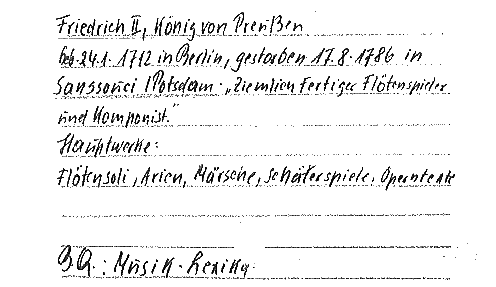 Friedrich II, König von Preußen
Geb. 24.1. 1712 in Berlin, gestorben 17.8.1786 in
Sanssouci / Potsdam. „Ziemlich fertiger Flötenspieler
und Komponist."
Hauptwerke:
Flötensoli, Arien, Märsche, Schäferspiele. Operntexte
B.Q.: Musik-Lexika.